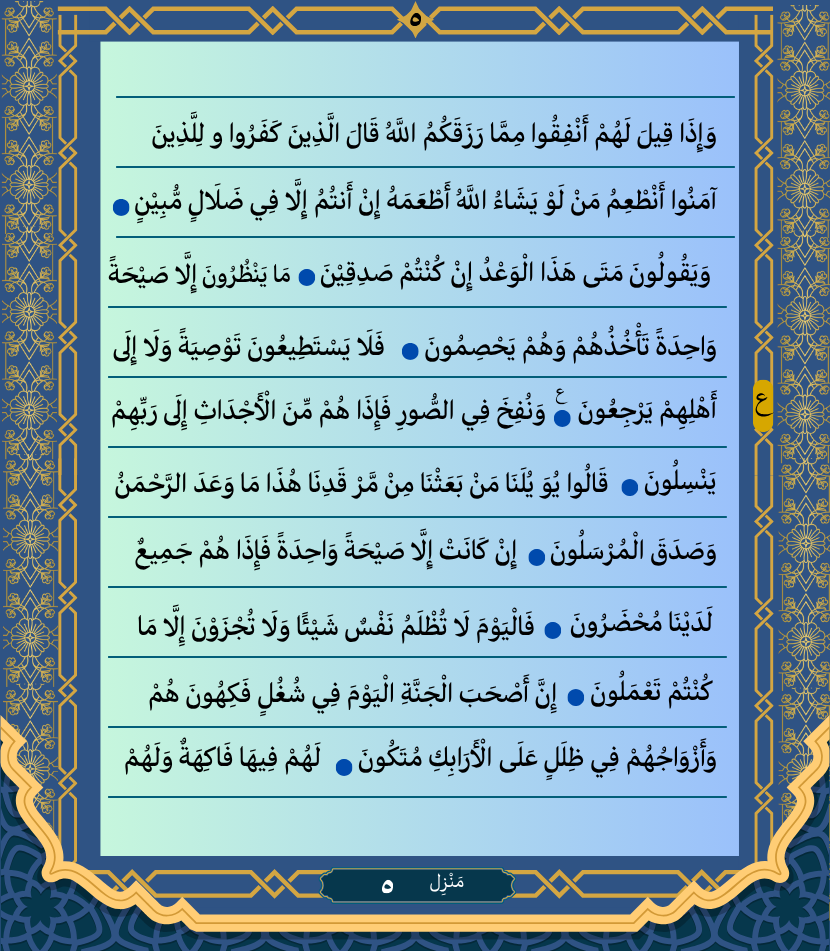 ٥
وَإِذَا قِيلَ لَهُمْ أَنْفِقُوا مِمَّا رَزَقَكُمُ اللَّهُ قَالَ الَّذِينَ كَفَرُوا و لِلَّذِينَ
آمَنُوا أَنُطْعِمُ مَنْ لَوْ يَشَاءُ اللَّهُ أَطْعَمَهُ إِنْ أَنتُمُ إِلَّا فِي ضَلَالٍ مُّبِيْنٍ
وَيَقُولُونَ مَتَى هَذَا الْوَعْدُ إِنْ كُنْتُمْ صَدِقِيْنَ مَا يَنْظُرُونَ إِلَّا صَيْحَةً
وَاحِدَةً تَأْخُذُهُمْ وَهُمْ يَحْصِمُونَ فَلَا يَسْتَطِيعُونَ تَوْصِيَةً وَلَا إِلَى
أَهْلِهِمْ يَرْجِعُونَ ع وَنُفِخَ فِي الصُّورِ فَإِذَا هُمْ مِّنَ الْأَجْدَاثِ إِلَى رَبِّهِمْ
ع
يَنْسِلُونَ قَالُوا يُوَ يُلَنَا مَنْ بَعَثْنَا مِنْ مَّرْ قَدِنَا هُذَا مَا وَعَدَ الرَّحْمَنُ
وَصَدَقَ الْمُرْسَلُونَ إِنْ كَانَتْ إِلَّا صَيْحَةً وَاحِدَةً فَإِذَا هُمْ جَمِيعٌ
لَدَيْنَا مُحْضَرُونَ فَالْيَوْمَ لَا تُظْلَمُ نَفْسٌ شَيْئًا وَلَا تُجْزَوْنَ إِلَّا مَا
كُنْتُمْ تَعْمَلُونَ إِنَّ أَصْحَبَ الْجَنَّةِ الْيَوْمَ فِي شُغُلٍ فَكِهُونَ هُمْ
وَأَزْوَاجُهُمْ فِي ظِلَلٍ عَلَى الْأَرَابِكِ مُتَكُونَ لَهُمْ فِيهَا فَاكِهَةٌ وَلَهُمْ
مَنْزِل ٥